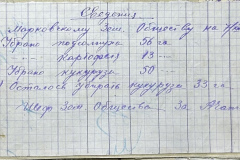 Сведения
Марковскому Зем. Обществу на
Убрано подсолнуха 56 га
" — картофеля 13 —"
Убрано кукуруза 50 —"
Осталось убирать кукуруза 33 га
Зем. Общества За